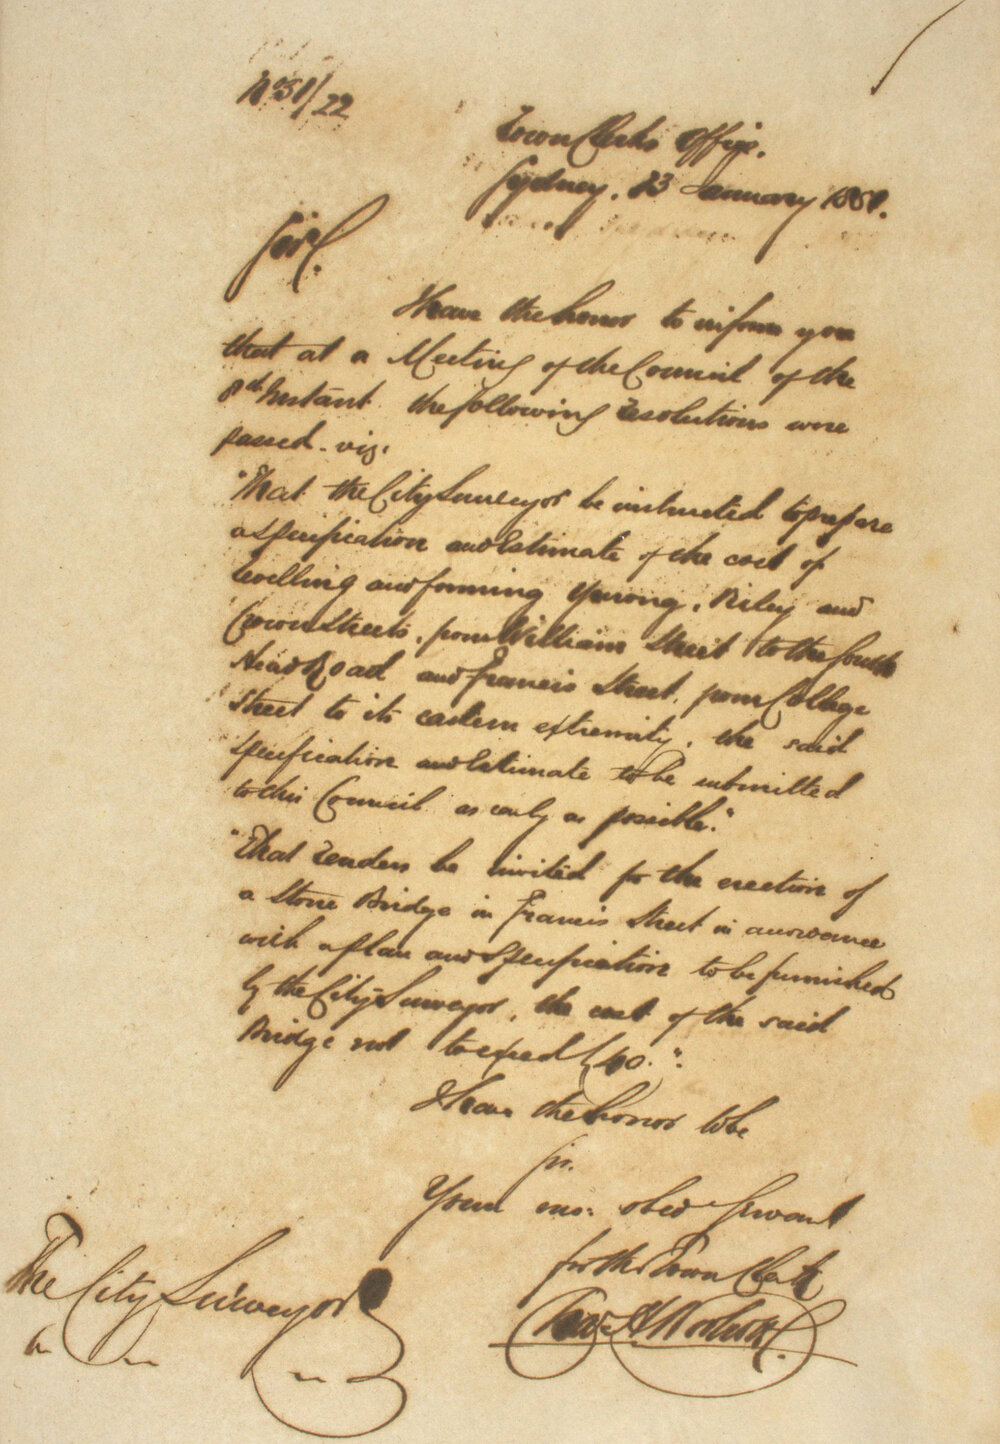 No 51/22
Town Clerks Office.
Sydney. 23 January 1851.
Sir,
I have the honor to inform you
that at a Meeting of the Council of the
8th Instant the following Resolutions were
passed. viz.
"That the City Surveyor be instructed to prepare
a Specification and Estimate of the cost of
levelling and forming Yurong, Riley and
Crown Streets, from William Street to the South
Head Road and Francis Street, from College
Street to its eastern extremity, the said
Specification and Estimate to be submitted
to this Council as early as possible."
"That Tenders be invited for the erection of
a Stone Bridge in Francis Street in accordance
with a plan and Specification to be furnished
by the City Surveyor, the cost of the said
Bridge not to exceed £40."
I have the honor to be
Sir.
Your mo: obed Servant
for the Town Clerk
The City Surveyor